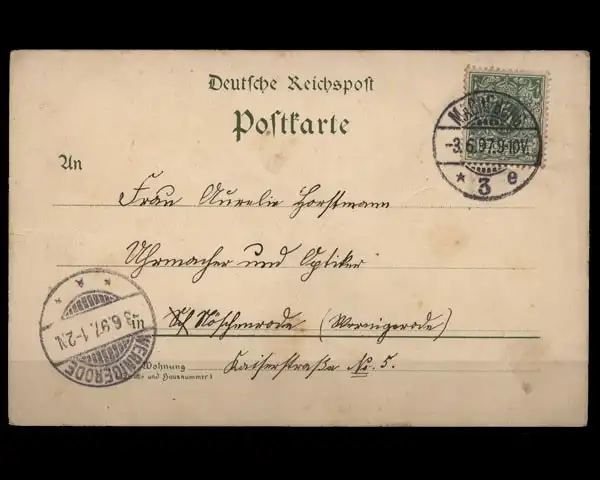 Deutsche Reichspost
Postkarte
An
Frau Aurelie Horstmann
Uhrmacher und Optiker
in Nöschenrode (Wernigerode)
Wohnung
Kaiserstraße No. 5.
-3.6.97.9-10V.
* 3 e
* A *
3.6.97.1-2N.
WERNIGERODE